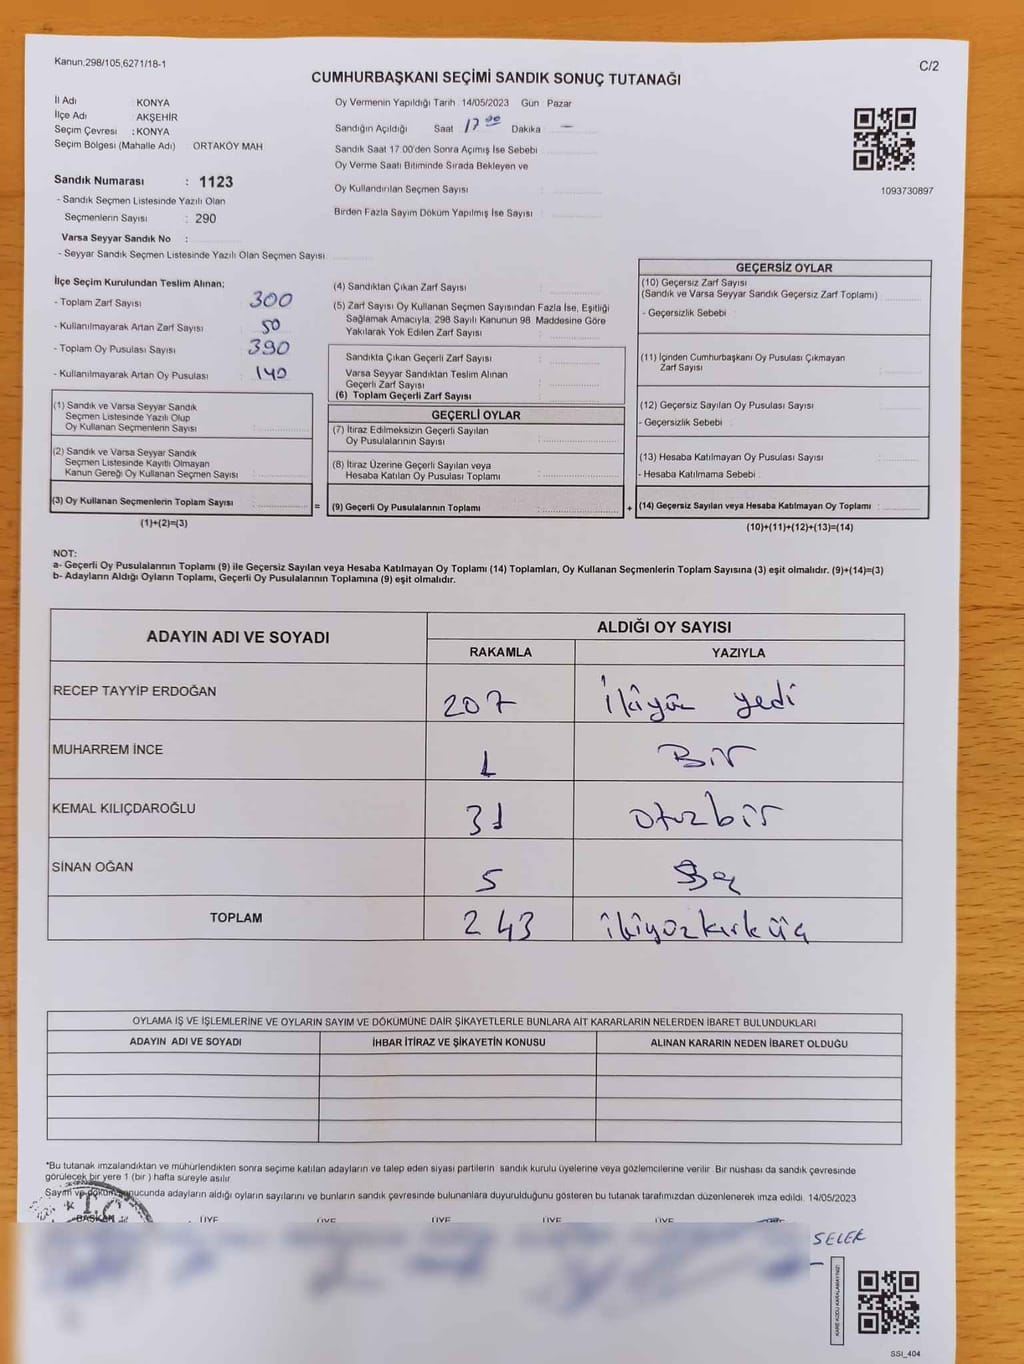 Kanun,298/105,6271/18-1
C/2
CUMHURBAŞKANI SEÇİMİ SANDIK SONUÇ TUTANAĞI
İl Adı : KONYA
İlçe Adı AKŞEHİR
Seçim Çevresi : KONYA
Seçim Bölgesi (Mahalle Adı) ORTAKÖY MAH
Oy Vermenin Yapıldığı Tarih 14/05/2023 Gün Pazar
Sandığın Açıldığı Saat 17 00 Dakika —
Sandık Saat 17.00'den Sonra Açımış İse Sebebi
Oy Verme Saati Bitiminde Sırada Bekleyen ve
Oy Kullandırılan Seçmen Sayısı :
Birden Fazla Sayım Döküm Yapılmış İse Sayısı :
1093730897
Sandık Numarası : 1123
- Sandık Seçmen Listesinde Yazılı Olan
Seçmenlerin Sayısı : 290
Varsa Seyyar Sandık No :
- Seyyar Sandık Seçmen Listesinde Yazılı Olan Seçmen Sayısı
İlçe Seçim Kurulundan Teslim Alınan;
- Toplam Zarf Sayısı : 300
- Kullanılmayarak Artan Zarf Sayısı : 50
- Toplam Oy Pusulası Sayısı : 390
- Kullanılmayarak Artan Oy Pusulası : 140
(1) Sandık ve Varsa Seyyar Sandık
Seçmen Listesinde Yazılı Olup
Oy Kullanan Seçmenlerin Sayısı :
(2) Sandık ve Varsa Seyyar Sandık
Seçmen Listesinde Kayıtlı Olmayan
Kanun Gereği Oy Kullanan Seçmen Sayısı :
(3) Oy Kullanan Seçmenlerin Toplam Sayısı :
(1)+(2)=(3)
=
(4) Sandıktan Çıkan Zarf Sayısı :
(5) Zarf Sayısı Oy Kullanan Seçmen Sayısından Fazla İse, Eşitliği
Sağlamak Amacıyla, 298 Sayılı Kanunun 98. Maddesine Göre
Yakılarak Yok Edilen Zarf Sayısı :
Sandıkta Çıkan Geçerli Zarf Sayısı :
Varsa Seyyar Sandıktan Teslim Alınan
Geçerli Zarf Sayısı :
(6) Toplam Geçerli Zarf Sayısı :
GEÇERLİ OYLAR
(7) İtiraz Edilmeksizin Geçerli Sayılan
Oy Pusulalarının Sayısı :
(8) İtiraz Üzerine Geçerli Sayılan veya
Hesaba Katılan Oy Pusulası Toplamı :
(9) Geçerli Oy Pusulalarının Toplamı :
+
GEÇERSİZ OYLAR
(10) Geçersiz Zarf Sayısı
(Sandık ve Varsa Seyyar Sandık Geçersiz Zarf Toplamı) :
- Geçersizlik Sebebi :
(11) İçinden Cumhurbaşkanı Oy Pusulası Çıkmayan
Zarf Sayısı :
(12) Geçersiz Sayılan Oy Pusulası Sayısı :
- Geçersizlik Sebebi :
(13) Hesaba Katılmayan Oy Pusulası Sayısı :
- Hesaba Katılmama Sebebi :
(14) Geçersiz Sayılan veya Hesaba Katılmayan Oy Toplamı :
(10)+(11)+(12)+(13)=(14)
NOT:
a- Geçerli Oy Pusulalarının Toplamı (9) ile Geçersiz Sayılan veya Hesaba Katılmayan Oy Toplamı (14) Toplamları, Oy Kullanan Seçmenlerin Toplam Sayısına (3) eşit olmalıdır. (9)+(14)=(3)
b- Adayların Aldığı Oyların Toplamı, Geçerli Oy Pusulalarının Toplamına (9) eşit olmalıdır.
ADAYIN ADI VE SOYADI ALDIĞI OY SAYISI
RAKAMLA YAZIYLA
RECEP TAYYİP ERDOĞAN 207 İkiyüz yedi
MUHARREM İNCE 1 Bir
KEMAL KILIÇDAROĞLU 31 otuzbir
SİNAN OĞAN 5 Beş
TOPLAM 243 ikiyüzkırküç
OYLAMA İŞ VE İŞLEMLERİNE VE OYLARIN SAYIM VE DÖKÜMÜNE DAİR ŞİKAYETLERLE BUNLARA AİT KARARLARIN NELERDEN İBARET BULUNDUKLARI
ADAYIN ADI VE SOYADI İHBAR İTİRAZ VE ŞİKAYETİN KONUSU ALINAN KARARIN NEDEN İBARET OLDUĞU
*Bu tutanak imzalandıktan ve mühürlendikten sonra seçime katılan adayların ve talep eden siyasi partilerin sandık kurulu üyelerine veya gözlemcilerine verilir. Bir nüshası da sandık çevresinde
görülecek bir yere 1 (bir ) hafta süreyle asılır.
Sayım ve döküm sonucunda adayların aldığı oyların sayılarını ve bunların sandık çevresinde bulunanlara duyurulduğunu gösteren bu tutanak tarafımızdan düzenlenerek imza edildi. 14/05/2023
T.C.
BAŞKAN ÜYE ÜYE ÜYE ÜYE ÜYE
SELEK
KARE KODU KARALAMAYINIZ!
SSI_404